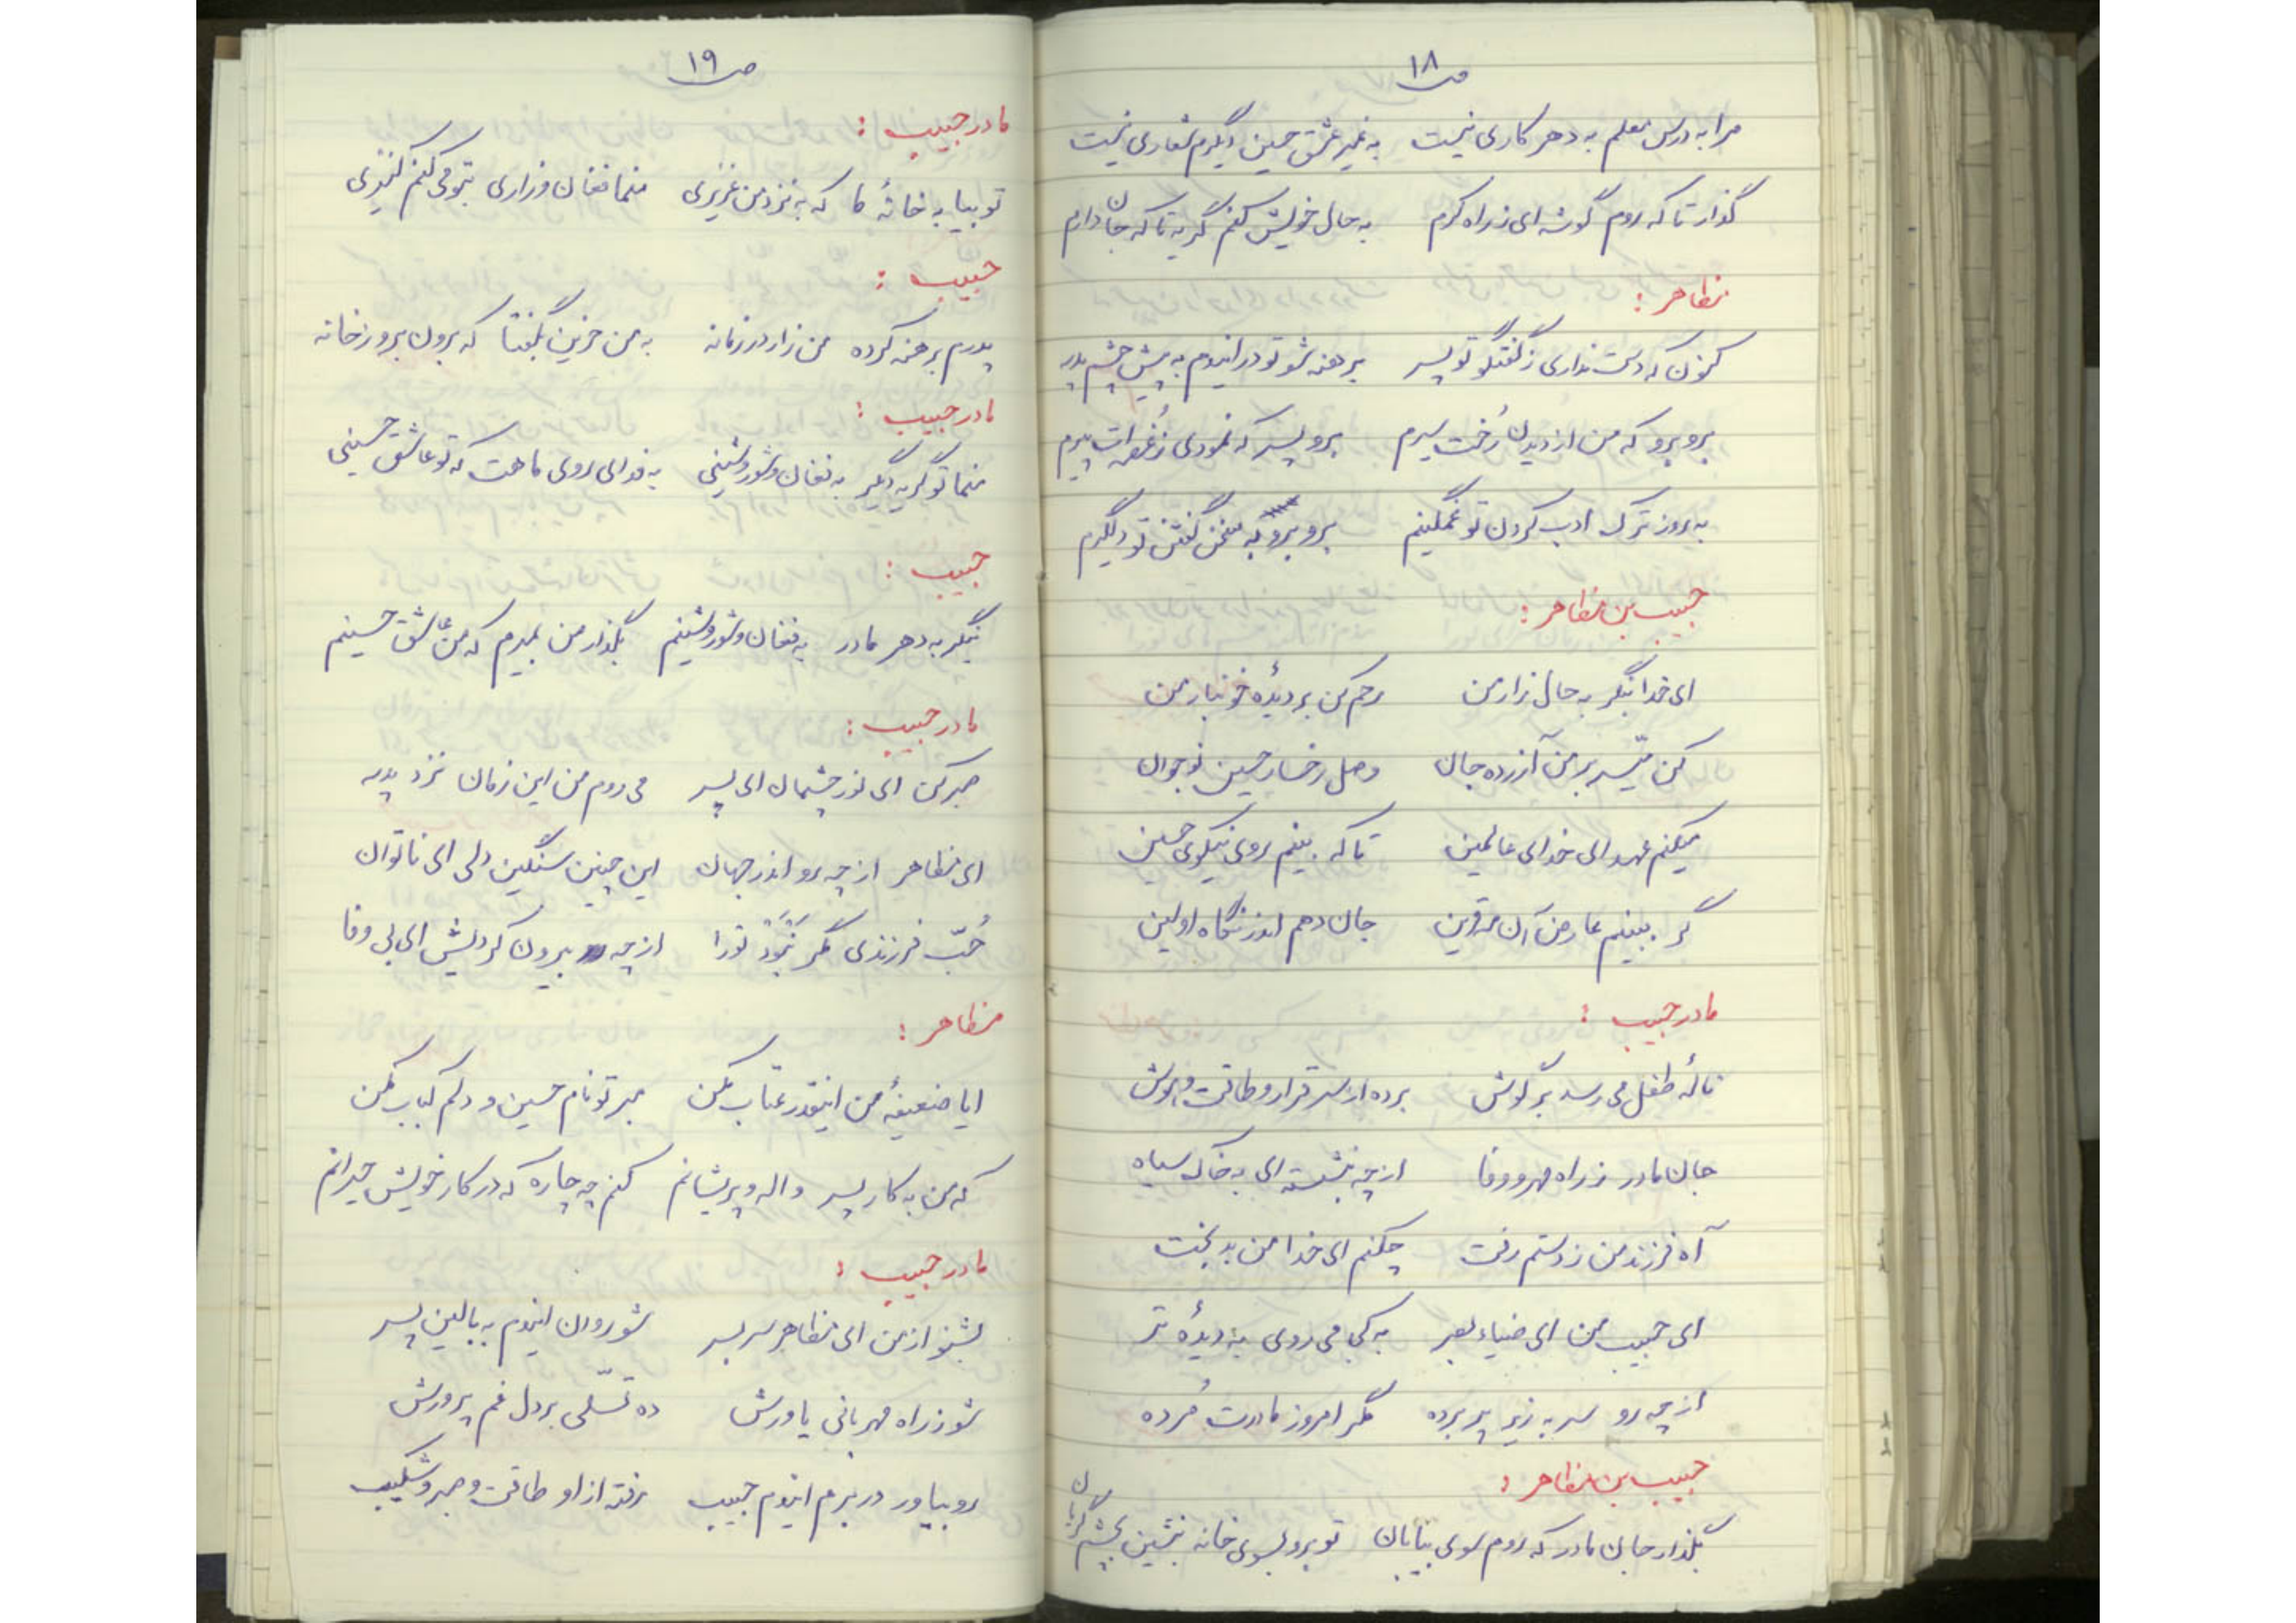 ص ۱۸
مرا به درس معلم به دهر کاری نیست به غیر عشق حسین دیگرم شعاری نیست
گذار تا که روم گوشه ای ز راه کرم به حال خویش کنم گریه تا که جان دارم
مظاهر :
کنون که دست نداری ز گفتگو تو پسر برهنه شو تو در ایندم به پیش چشم پدر
برو برو که من از دیدن رُخت سیرم برو پسر که نمودی ز غصه ات پیرم
به روز ترک ادب کردن تو غمگینم برو برو که سخن گفتن تو دلگیرم
حبیب بن مظاهر :
ای خدا بنگر به حال زار من رحم کن بر دیدهٔ خونبار من
کن میّسر بر من آزرده جان وصل رخسار حسین نوجوان
میکنم عهد ای خدای عالمین تا که بینم روی نیکوی حسین
گر ببینم عارض آن مه قرین جان دهم اندر نگاه اولین
مادر حبیب :
نالهٔ طفل می رسد بر گوش برده از سر قرار و طاقت و هوش
جان مادر ز راه مهر و وفا از چه بنشسته ای به خاک سیاه
آه فرزند من ز دستم رفت چکنم ای خدا من بدبخت
ای حبیب من ای ضیاء بصر به کجا می روی به دیدهٔ تر
از چه رو سر به زیر پر برده مگر امروز مادرت مُرده
حبیب بن مظاهر :
بگذار جان مادر که روم سوی بیابان تو برو بسوی خانه بنشین بچشم گریان
ص ۱۹
مادر حبیب :
تو بیا به خانهٔ ما که به نزد من عزیزی منما فغان و زاری بتو می کنم کنیزی
حبیب :
پدرم برهنه کرده من زار در زمانه به من حزین بگفتا که برون برو ز خانه
مادر حبیب :
منما تو گریه دیگر به فغان و شور و شینی به فدای روی ماهت که تو عاشق حسینی
حبیب :
بنگر به دهر مادر به فغان و شور و شینم بگذار من بمیرم که من عاشق حسینم
مادر حبیب :
صبر کن ای نور چشمان ای پسر می روم من این زمان نزد پدر
ای مظاهر از چه رو اندر جهان این چنین سنگین دلی ای ناتوان
حُبّ فرزندی مگر نَبْوَد تورا از چه بیرون کردیش ای بی وفا
مظاهر :
ایا ضعیفهٔ من اینقدر عتاب مکن مبر تو نام حسین و دلم کباب مکن
که من به کار پسر واله و پریشانم کنم چه چاره که در کار خویش حیرانم
مادر حبیب :
بشنو از من ای مظاهر سر بسر شو روان ایندم به بالین پسر
شو ز راه مهربانی یاورش ده تسّلی بر دل غم پرورش
رو بیاور در برم ایندم حبیب رفته از او طاقت و صبر و شکیب